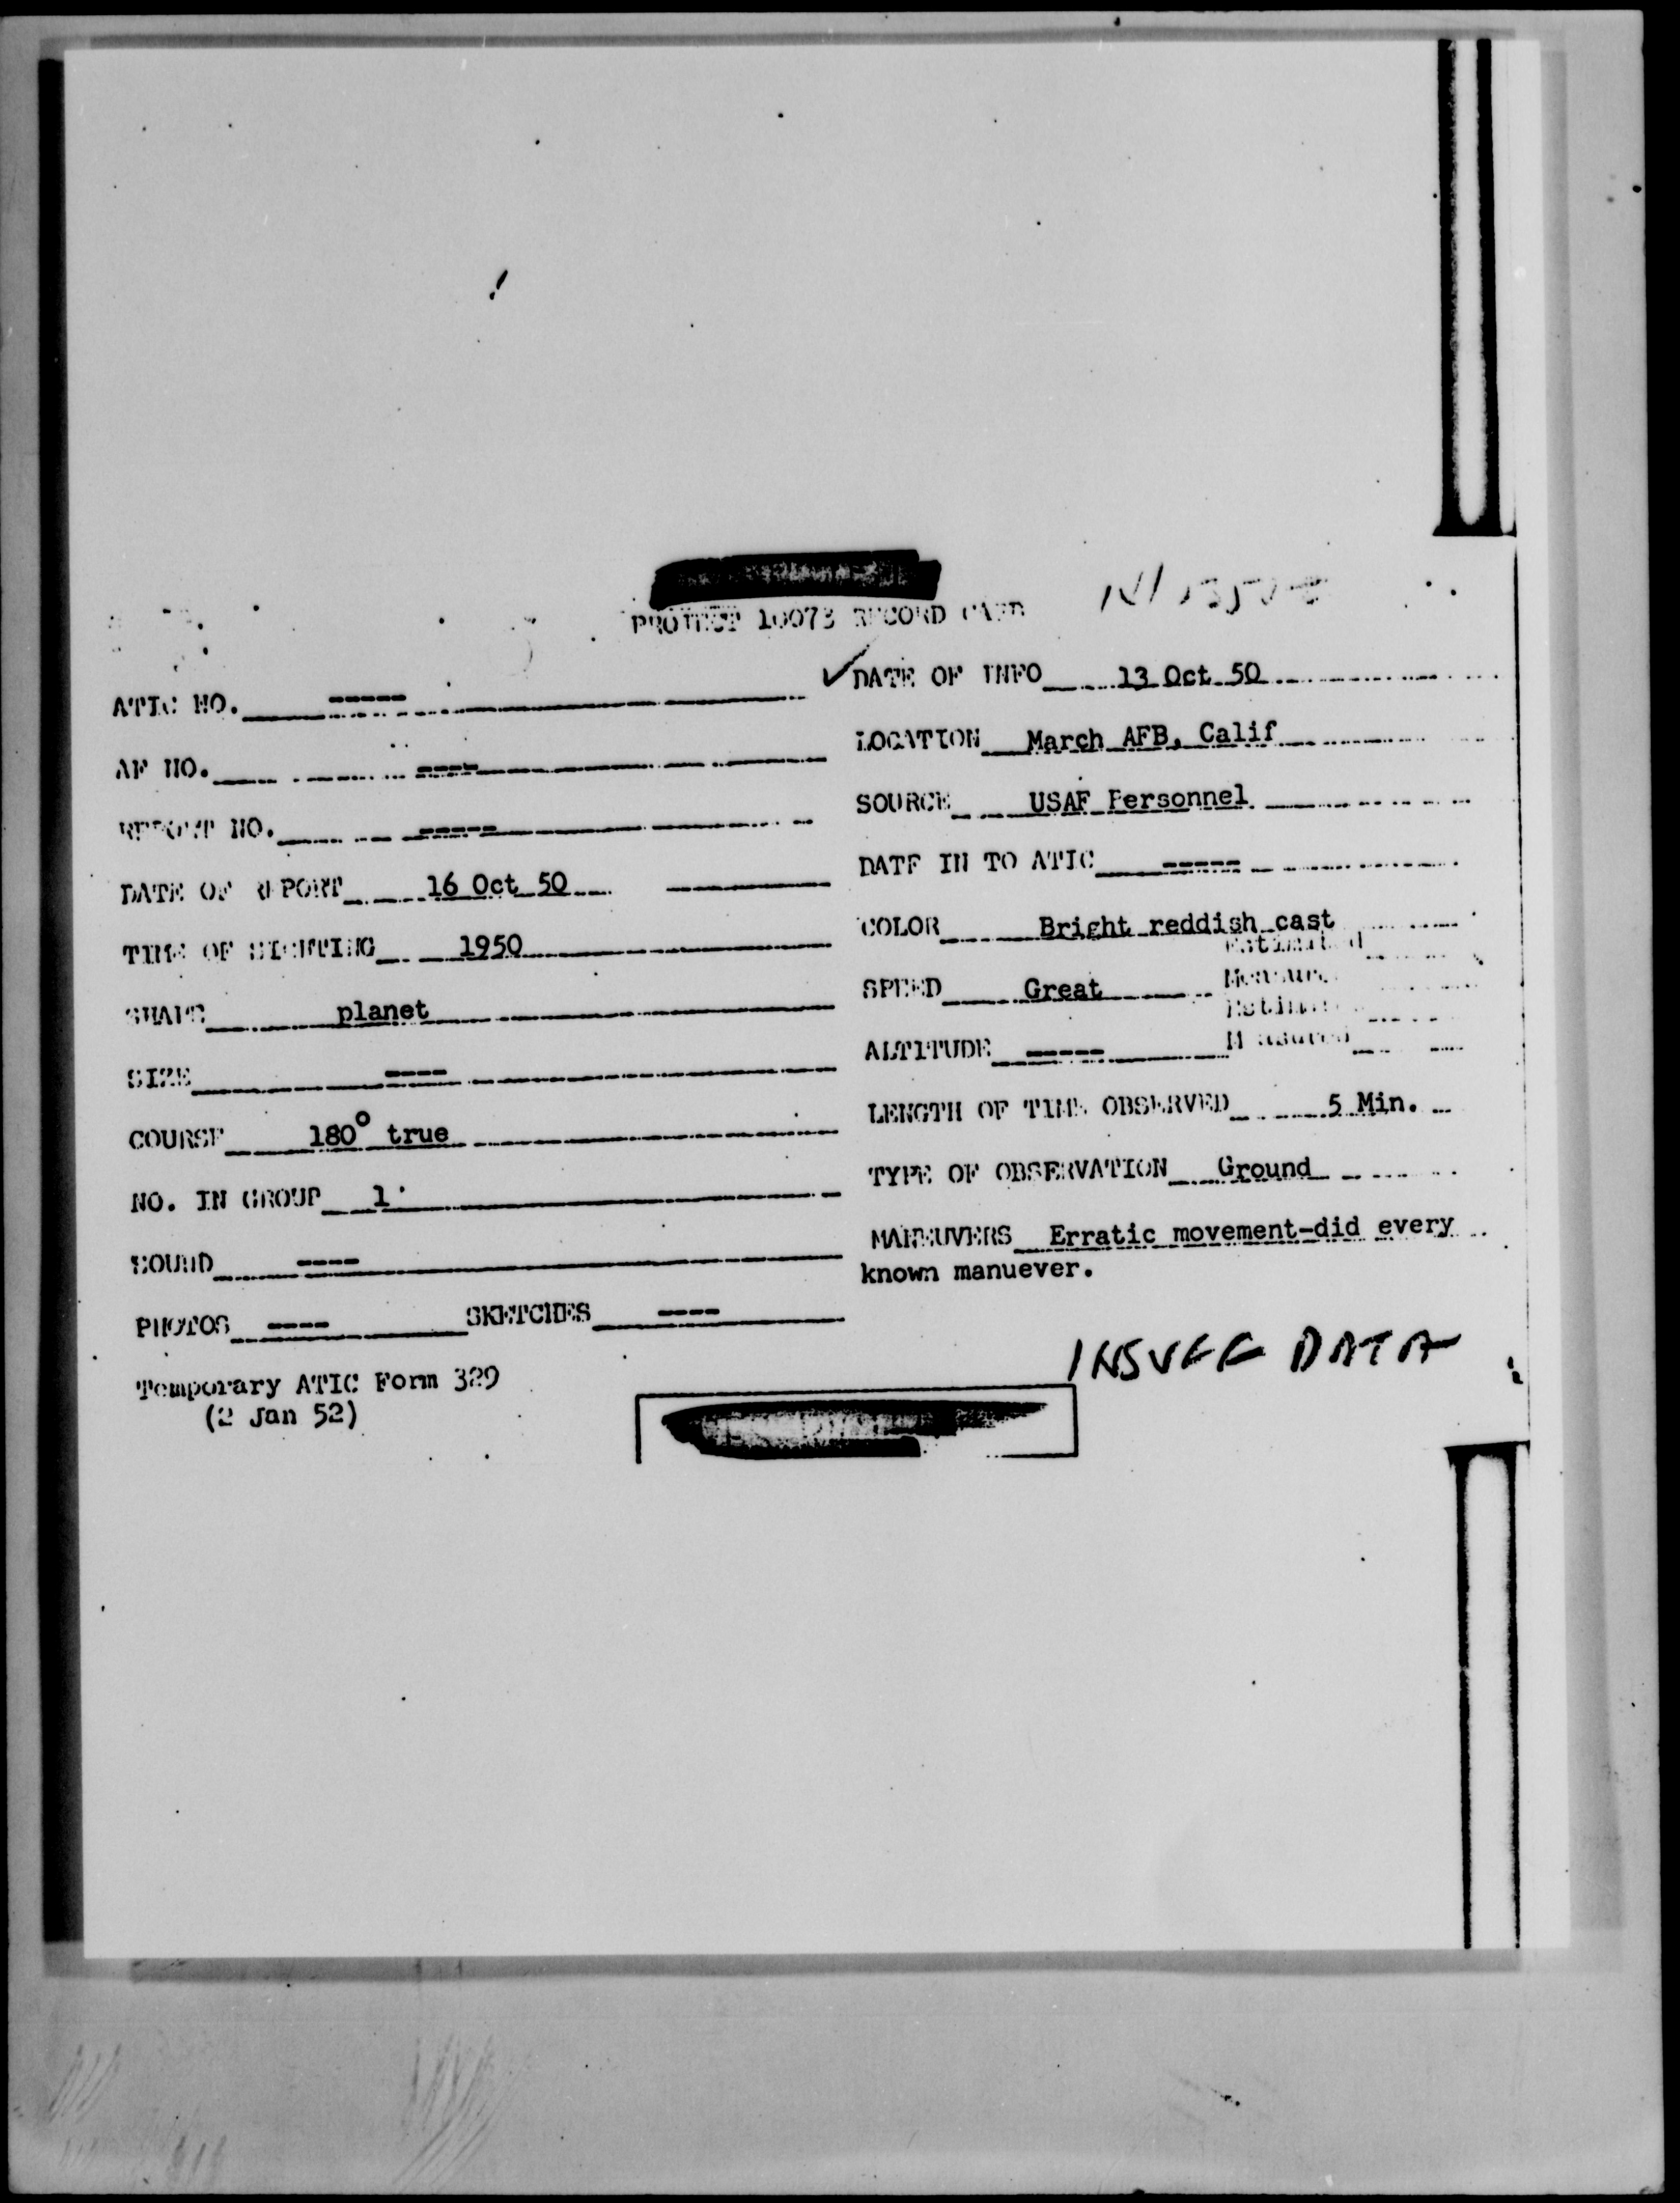 PROJECT 10073 RECORD CARD
ATIC NO. -----
AF NO. ----
REPORT NO. -----
DATE OF REPORT 16 Oct 50
TIME OF SIGHTING 1950
SHAPE planet
SIZE ----
COURSE 180° true
NO. IN GROUP 1
SOUND ----
PHOTOS ---- SKETCHES ----
Temporary ATIC Form 329
(2 Jan 52)
DATE OF INFO 13 Oct 50
LOCATION March AFB, Calif
SOURCE USAF Personnel
DATE IN TO ATIC -----
COLOR Bright reddish cast
Estimated
SPEED Great Measured
Estimated
ALTITUDE ----- Measured
LENGTH OF TIME OBSERVED 5 Min.
TYPE OF OBSERVATION Ground
MANEUVERS Erratic movement-did every
known manuever.
INSUFF DATA